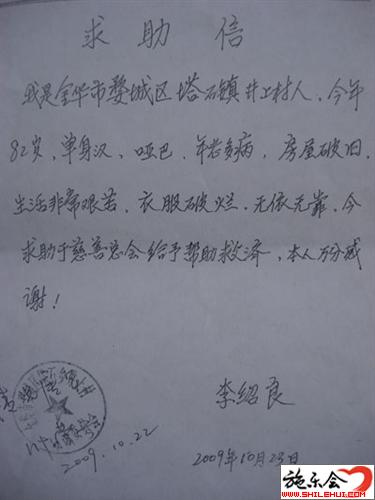 求助信
我是金华市婺城区塔石镇井上村人、今年
82岁、单身汉、哑巴、年老多病、房屋破旧、
生活非常艰苦、衣服破烂、无依无靠、今
求助于慈善总会给予帮助救济，本人万分感
谢！
李绍良
2009.10.22
2009年10月23日
施乐会
WWW.SHILEHUI.COM